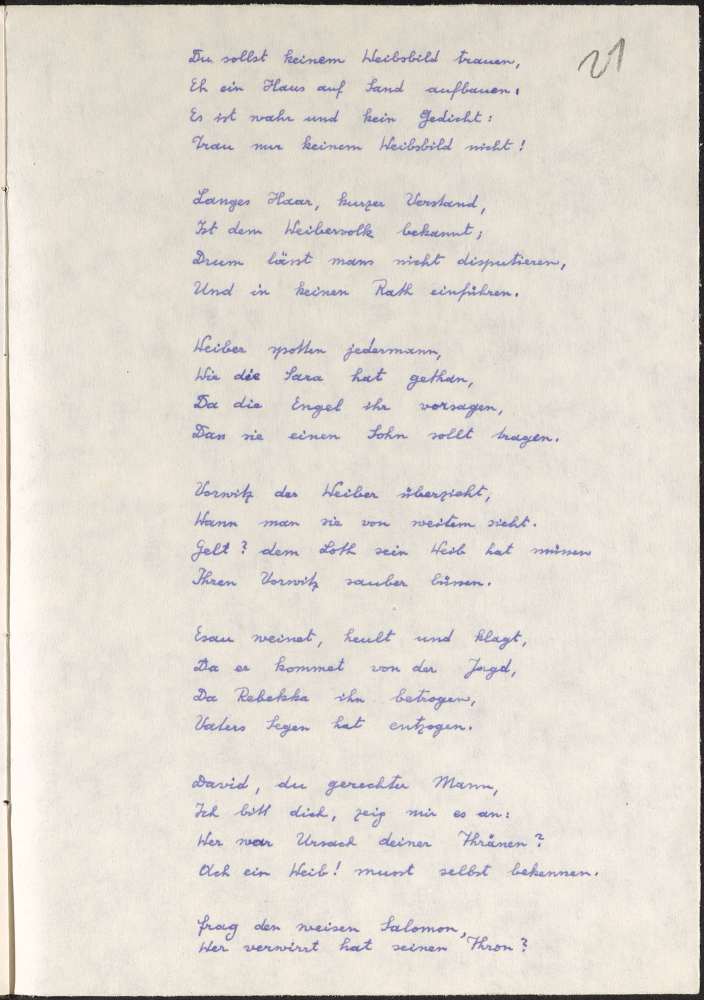 21
Du sollst keinem Weibsbild trauen,
Eh ein Haus auf Sand aufbauen:
Es ist wahr und kein Gedicht:
Trau nur keinem Weibsbild nicht!
Langes Haar, kurzer Verstand,
Ist dem Weibervolk bekannt;
Drum lässt mans nicht disputieren,
Und in keinen Rath einführen.
Weiber spotten jedermann,
Wie die Sara hat gethan,
Da die Engel ihr vorsagen,
Dass sie einen Sohn sollt tragen.
Vorwitz der Weiber überzieht,
Wann man sie von weitem sieht.
Gelt? dem Loth sein Weib hat müssen
Ihren Vorwitz sauber büssen.
Esau weinet, heult und klagt,
Da er kommet von der Jagd,
Da Rebekka ihn betrogen,
Vaters Segen hat entzogen.
David, du gerechter Mann,
Ich bitt dich, zeig mir es an:
Wer war Ursach deiner Thränen?
Ach ein Weib! musst selbst bekennen.
Frag den weisen Salomon,
Wer verwirrt hat seinen Thron?